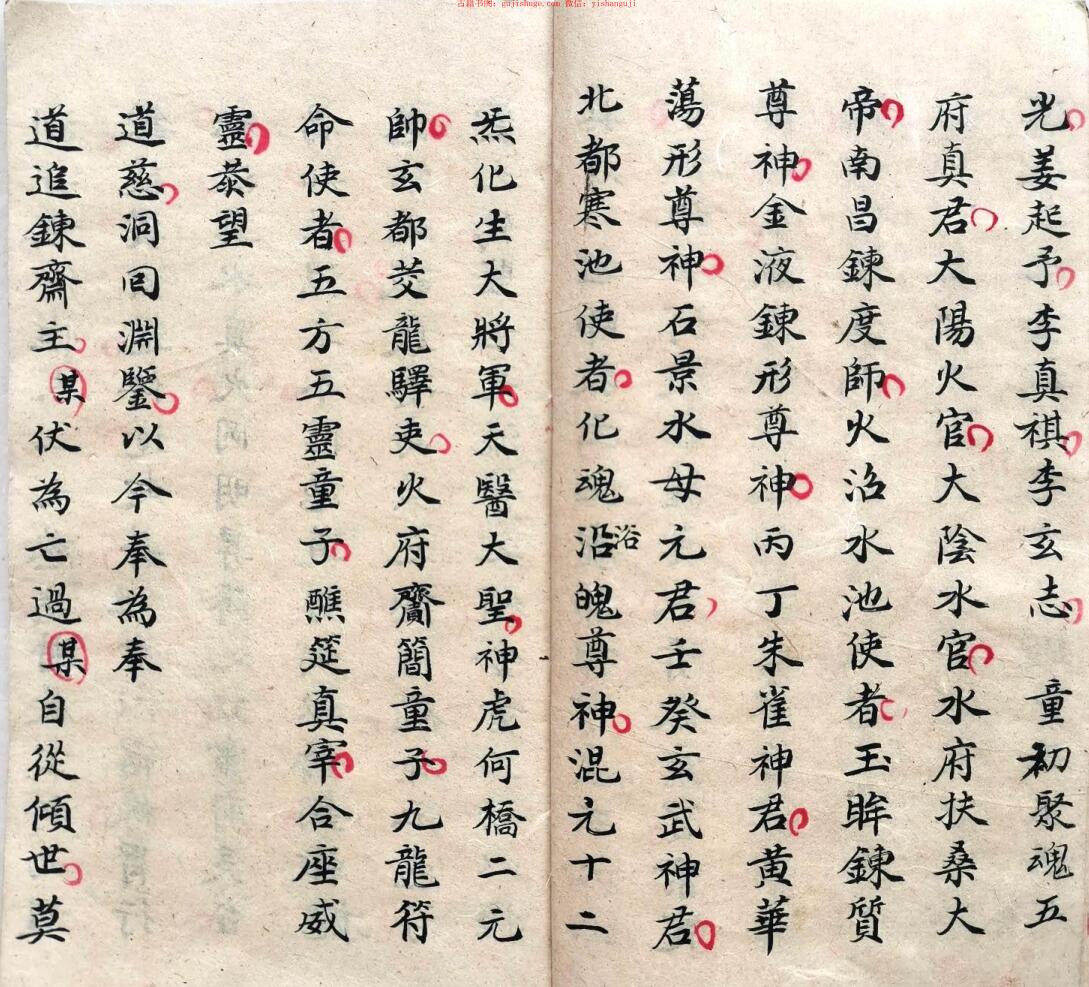 古籍书阁：gujishuge.com 微信：yishanguji
光姜起予李真祺李玄志 童初聚魂五
府真君大陽火官大陰水官水府扶桑大
帝南昌鍊度師火沼水池使者玉眸鍊質
尊神金液鍊形尊神丙丁朱雀神君黃華
蕩形尊神石景水母元君壬癸玄武神君
北都寒池使者化魂沿浴魄尊神混元十二
炁化生大將軍天醫大聖神虎何橋二元
帥玄都茭龍驛吏火府齎簡童子九龍符
命使者五方五靈童子醮筵真宰合座威
靈恭望
道慈洞囘淵鑒以今奉為奉
道追鍊齋主某伏為亡過某自從傾世莫